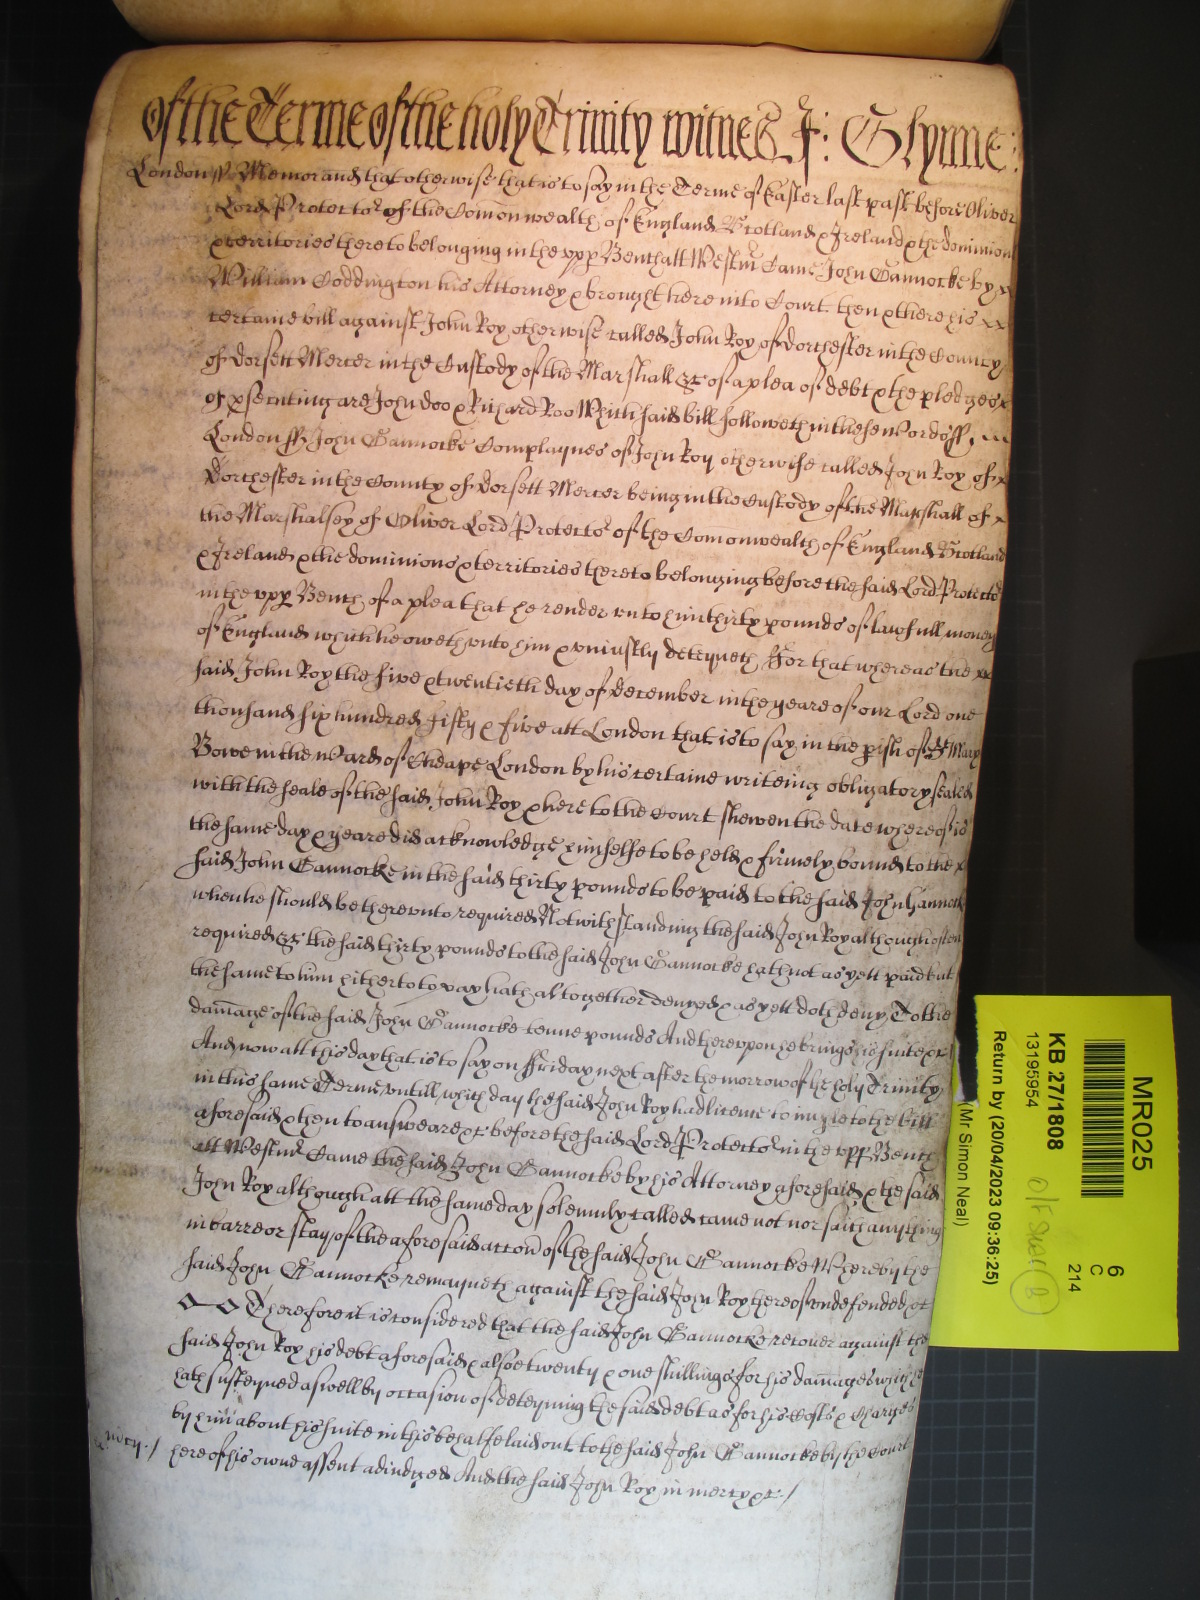 Of the Terme of the holy Trinity witnes J: Glynne:
London ss Memorand that otherwise that is to say in the Terme of Easter last past before Oliver
Lord Protector of the Comon wealth of England Scotland & Ireland & the dominion
& territories thereto belonging in the upp Bench att Westmr Came John Hannocke by
William Coddington his Attorney & brought here into Court then & there his
certaine bill against John Roy otherwise called John Roy of dorchester in the County
of dorsett Mercer in the Custody of the Marshall &c of a plea of debt & the pledges
of psecuting are John doo & Richard Roo Which said bill followeth in these words ss,
London ss John Hannocke Complaynes of John Roy otherwise called John Roy of
dorchester in the County of dorsett Mercer being in the Custody of the Marshall of
the Marshalsey of Oliver Lord Protector of the Comonwealth of England Scotland
& Ireland & the dominions & territories thereto belonging before the said Lord Protector
in the upp Bench of a plea that he render unto him thirty pounds of lawfull money
of England which he oweth unto him & uniustly deteyneth ffor that whereas the
said John Roy the five & twentieth day of december in the yeare of our Lord one
thousand six hundred fifty & five att London that is to say in the pish of St Mary
Bowe in the Ward of Cheape London by his certaine writeing obligatory sealed
with the seale of the said John Roy & here to the Court shewen the date whereof is
the same day & yeare did acknowledge himselfe to be held & firmely bound to the
said John Hannocke in the said thirty pounds to be paid to the said John Hannock
when he should be thereunto required Notwithstanding the said John Roy although often
required &c the said thirty pounds to the said John Hannocke hath not as yett paid but
the same to him hitherto to pay hath altogether denyed & as yett doth deny To the
damage of the said John Hannocke tenne pounds And thereupon he brings his suite &c
And now att this day that is to say on ffriday next after the morrow of the holy Trinity
in this same Terme untill which day the said John Roy had licence to imple to the bill
aforesaid & then to answeare &c before the said Lord Protector in the upp Bench
att Westmr Came the said John Hannocke by his Attorney aforesaid & the said
John Roy although att the same day solemnly called came not nor saith anything
in barre or stay of the aforesaid accon of the said John Hannocke Whereby the
said John Hannocke remayneth against the said John Roy thereof undefended &c
Therefore it is considered that the said John Hannocke recover against the
said John Roy his debt aforesaid & alsoe twenty & one shillings for his damages which he
hath susteyned aswell by occasion of deteyning the said debt as for his Costs & Charges
by him about his suite in this behalfe laid out to the said John Hannocke by the Court
here of his owne assent adiudged And the said John Roy in mercy &c /
mcy. /
MR025
KB 27/1808
13195954
Return by (20/04/2023 09:36:25)
(Mr Simon Neal)
6
C
214